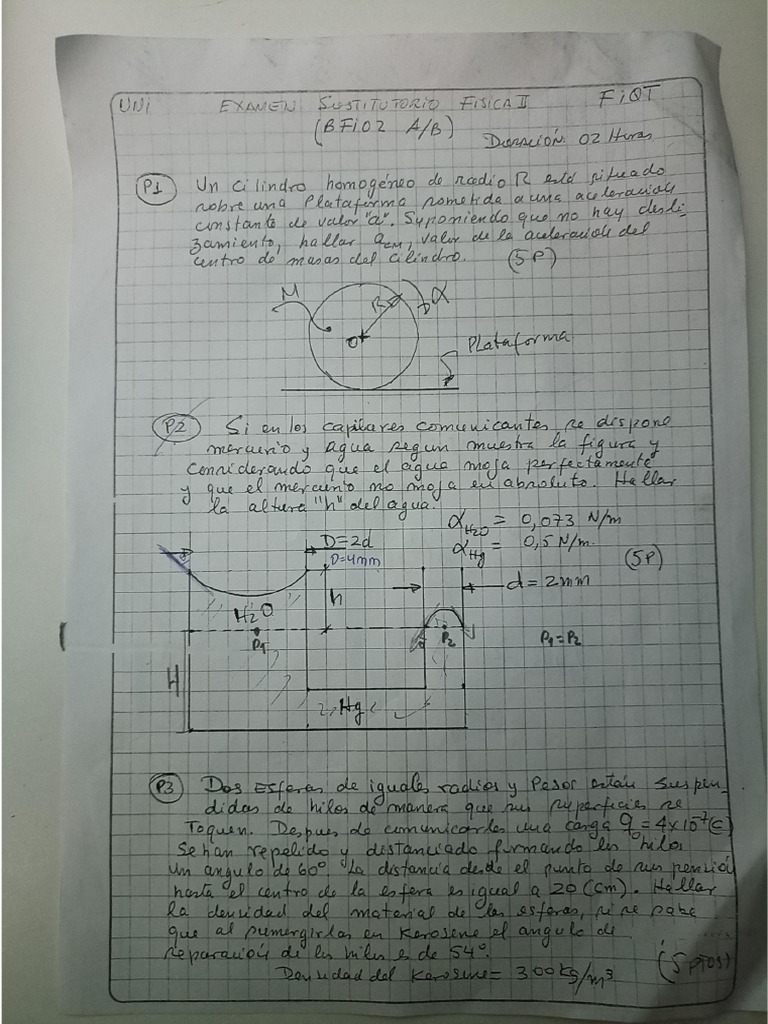 UNI EXAMEN SUSTITUTORIO FISICA II FIQT
(BFI02 A/B)
Duración: 02 Horas
P1 Un cilindro homogéneo de radio R está situado
sobre una Plataforma sometida a una aceleración
constante de valor "a". Suponiendo que no hay desli-
zamiento, hallar aCM, valor de la aceleración del
centro de masas del cilindro. (5P)
M
R
α
O
Plataforma
P2 Si en los capilares comunicantes se dispone
mercurio y agua segun muestra la figura y
considerando que el agua moja perfectamente
y que el mercurio no moja en absoluto. Hallar
la altura "h" del agua.
αH2O = 0,073 N/m
αHg = 0,5 N/m.
(5P)
D=2d
D=4mm
d=2mm
h
H2O
P1
P2
P1=P2
H
Hg
P3 Dos esferas de iguales radios y Pesos están suspen-
didas de hilos de manera que sus superficies se
Toquen. Despues de comunicarles una carga q0=4x10⁻⁷(C)
se han repelido y distanciado formando los hilos
un angulo de 60°. La distancia desde el punto de suspensión
hasta el centro de la esfera es igual a 20 (cm). Hallar
la densidad del material de las esferas, si se sabe
que al sumergirlas en Kerosene el angulo de
separación de los hilos es de 54°.
Densidad del Kerosine = 300 kg/m³
(5 ptos)